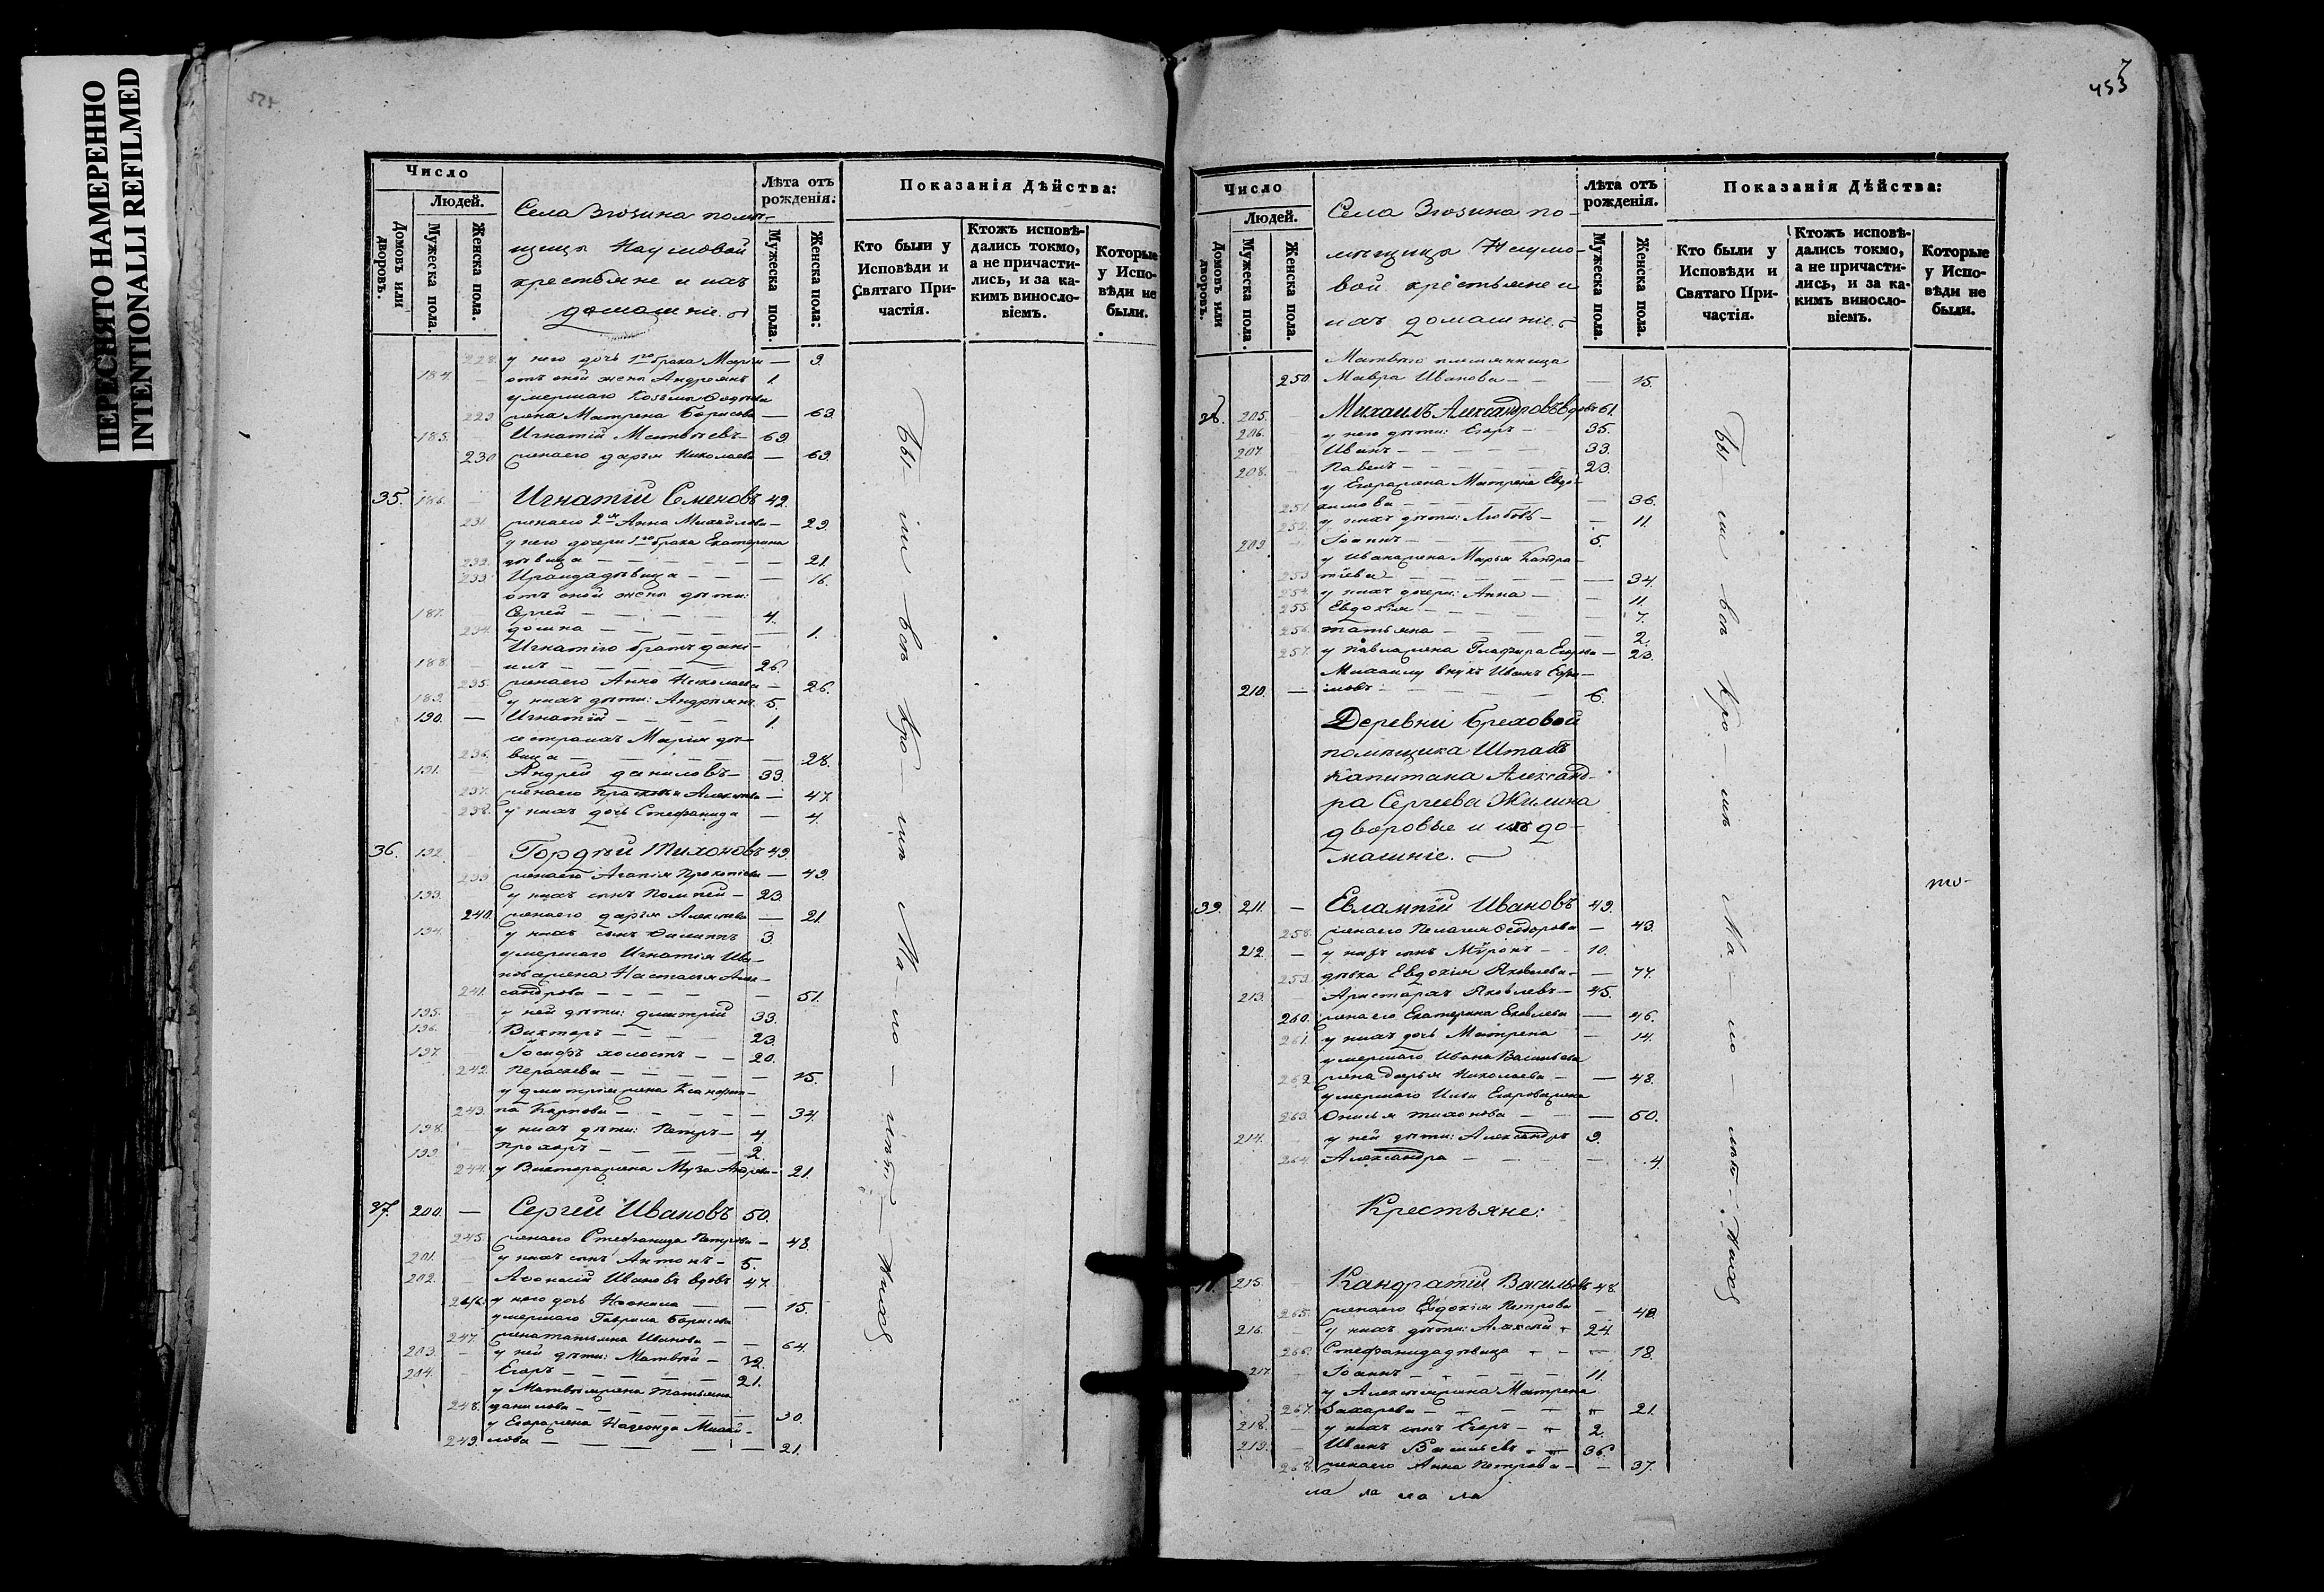 ПЕРЕСНЯТО НАМЕРЕННО
INTENTIONALLI REFILMED
Число
Людей.
Домовъ или дворовъ.
Мужеска пола.
Женска пола.
Села Зюзина помѣ-
щицы Наумовой
крестьяне и ихъ
домашніе.
Лѣта отъ рожденія.
Мужеска пола
Женска пола:
Показанія Дѣйства:
Кто были у Исповѣди и Святаго Причастія.
Ктожъ исповѣдались токмо, а не причастились, и за какимъ винословіемъ.
Которые у Исповѣди не были.
228. у него дочь 1го брака Марія — 9.
184. отъ оной жены Андреянъ 1.
умершаго Козьмы
229. жена Матрена Борисова — 63.
185. Игнатій Матвѣевъ — 69.
230 жена его Дарья Николаева — 69.
35. 186. Игнатій Семеновъ 42.
231. жена его 2я Анна Михайлова — 29.
у него дочери 1го брака Екатерина
232. дѣвица — 21.
233. Ираида дѣвица — 16.
отъ оной жены дѣти:
187. Сергей — 4.
234. Домна — 1.
Игнатія братъ Дані-
188. илъ — 26.
235. жена его Анна Николаева — 26.
189. у нихъ дѣти: Андреянъ 5.
190. — Игнатій — 1.
сестра ихъ Марія дѣ-
236. вица — 28.
191. Андрей Даниловъ — 39.
237. жена его Прасковья Алексѣева — 47.
238. у нихъ дочь Стефанида — 4.
36. 192. Гордѣй Тихоновъ 49.
239. жена его Агапія Прокопіева — 49.
193. у нихъ сынъ Помпей — 23.
240. жена его Дарья Алексѣева — 21.
194. у нихъ сынъ Филиппъ 3.
умершаго Игнатія Ива-
нова жена Настасья Алек-
241. сандрова — 51.
195. у ней дѣти: Дмитрій 33.
196. Викторъ — 23.
197. Іосифъ холостъ — 20.
242. Параскева — 15.
у Дмитрія жена Ксанфип-
243. па Карпова — 34.
198. у нихъ дѣти: Петръ — 4.
199. Прохоръ — 2.
244. у Виктора жена Муза — 21.
37. 200. — Сергей Ивановъ 50.
245. жена его Стефанида Петрова — 48.
201. у нихъ сынъ Антонъ — 5.
202. Афонасій Ивановъ вдовъ 47.
246. у него дочь Неонила — 15.
умершаго Гаврила Борисова
247. жена Татьяна Иванова — 64.
203. у ней дѣти: Матвѣй — 32.
204. Егоръ — 21.
у Матвѣя жена Татьяна
248. Данилова — 30.
у Егора жена Надежда Михай-
249. лова — 21.
453
Число
Людей.
Домовъ или дворовъ.
Мужеска пола.
Женска пола.
Села Зюзина по-
мѣщицы Наумо-
вой крестьяне и
ихъ домашніе.
Лѣта отъ рожденія.
Мужеска пола
Женска пола.
Показанія Дѣйства:
Кто были у Исповѣди и Святаго Причастія.
Ктожъ исповѣдались токмо, а не причастились, и за какимъ винословіемъ.
Которые у Исповѣди не были.
Матвѣю племянница
250. Мавра Иванова — 15.
38. 205. Михаилъ Александровъ вдовъ 61.
206. у него дѣти: Егоръ — 35.
207. Иванъ — 33.
208. Павелъ — 23.
у Егора жена Матрена Евдо-
251. кимова — 36.
252. у нихъ дѣти: Любовь — 11.
209. Іоаннъ — 5.
у Ивана жена Марья Кандра-
253. тіева — 34.
254. у нихъ дочери: Анна — 11.
255. Евдокія — 7.
256. Татьяна — 2.
257. у Павла жена Глафира Егорова — 23.
Михаилу внукъ Иванъ Ефи-
210. — мовъ — 6.
Деревни Бреховой
помѣщика Штабъ
Капитана Александ-
ра Сергеева Жилина
дворовые и ихъ до-
машніе.
39. 211. — Евлампій Ивановъ 49.
258. жена его Пелагея Ѳедорова — 43.
212. — у нихъ сынъ Мѵронъ — 10.
259. дѣвка Евдокія Яковлева — 77.
213. Аристархъ Яковлевъ — 45.
260. жена его Екатерина Яковлева — 46.
261. у нихъ дочь Матрена — 14.
умершаго Ивана Васильева
262. жена Дарья Николаева — 48.
умершаго Ильи Егорова жена
263. Онисья Тихонова — 50.
214. у ней дѣти: Александръ 9.
264. Александра — 4.
Крестьяне:
40. 215. Кандратій Васильевъ 48.
265. жена его Евдокія Петрова — 48.
216. у нихъ дѣти: Алексѣй 24.
266. Стефанида дѣвица — 18.
217. Іоаннъ — 11.
у Алексѣя жена Матрена
267. Захарова — 21.
218. у нихъ сынъ Егоръ — 2.
219. Иванъ Васильевъ — 36.
268. жена его Анна Петрова — 37.